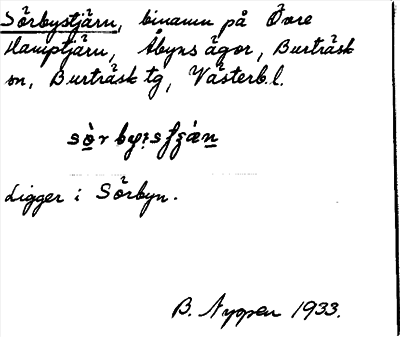 Sörbystjärn, binamn på Övre
Hamptjärn, Åbyns ägor, Burträsk
sn, Burträsk tg, Västerb. l.
Ligger i Sörbyn.
B. Nygren 1933.